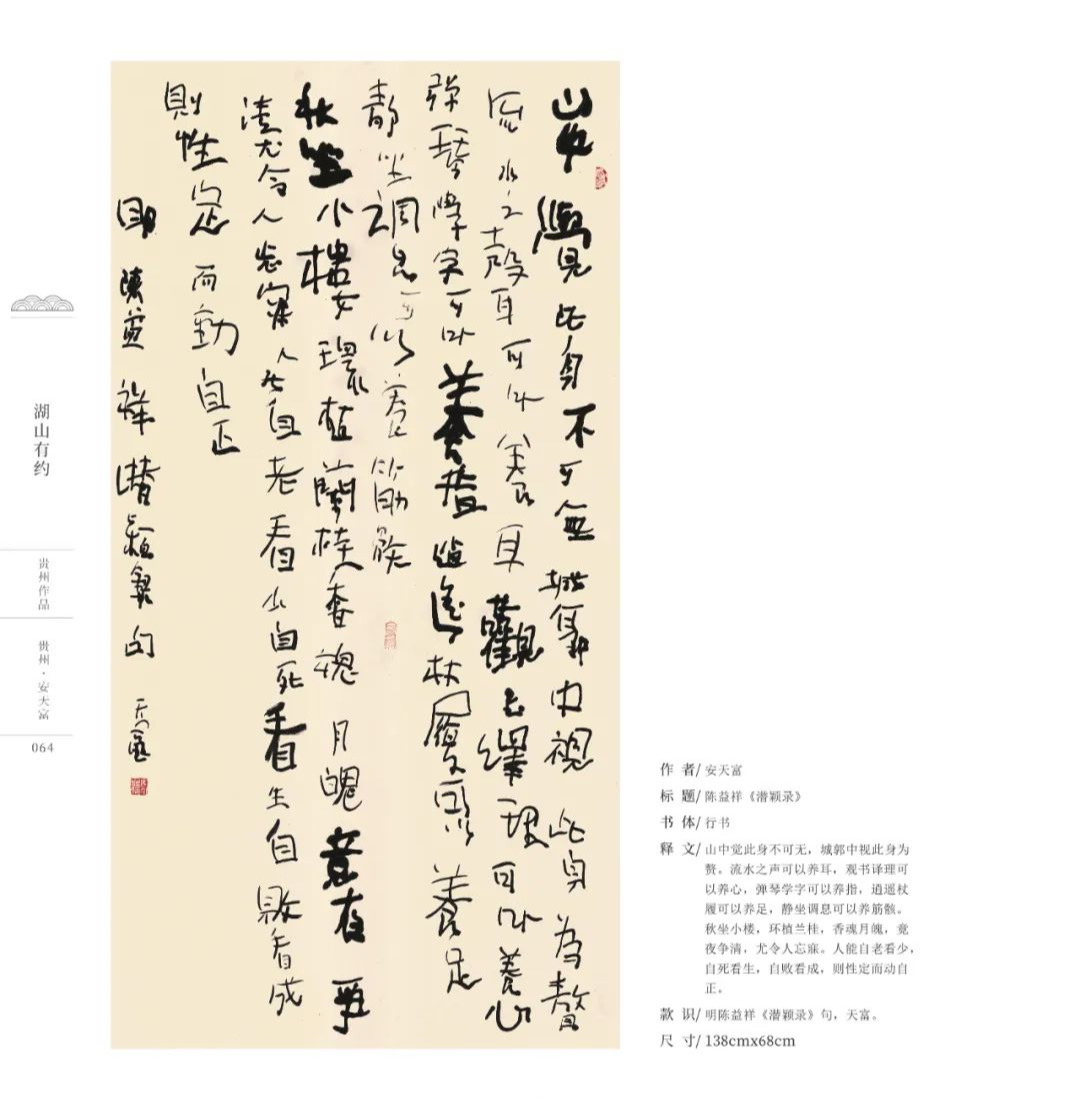 湖山有约
贵州作品
贵州·安天富
064
山中覺此身不可無城郭中視此身為贅
流水之聲可以養耳觀書繹理可以養心
彈琴學字可以養指逍遙杖履可以養足
靜坐調息可以養筋骸
秋坐小樓環植蘭桂香魂月魄竟夜爭
清尤令人忘寐人能自老看少自死看生自敗看成
則性定而動自正
明陳益祥潛穎錄句 天富
作 者/ 安天富
标 题/ 陈益祥《潜颖录》
书 体/ 行书
释 文/ 山中觉此身不可无，城郭中视此身为
赘。流水之声可以养耳，观书译理可
以养心，弹琴学字可以养指，逍遥杖
履可以养足，静坐调息可以养筋骸。
秋坐小楼，环植兰桂，香魂月魄，竟
夜争清，尤令人忘寐。人能自老看少，
自死看生，自败看成，则性定而动自
正。
款 识/ 明陈益祥《潜颖录》句，天富。
尺 寸/ 138cmx68cm